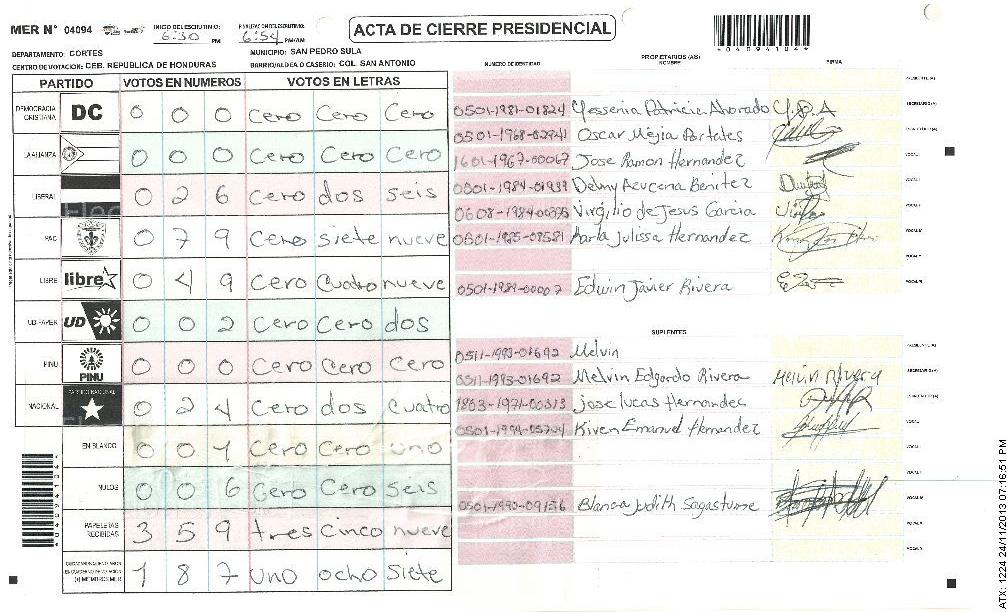 MER N° 04094
INICIO DEL ESCRUTINIO: 6:30 PM
FINALIZACION DEL ESCRUTINIO: 6:54 PM/AM
ACTA DE CIERRE PRESIDENCIAL
*04094104*
DEPARTAMENTO: CORTES
MUNICIPIO: SAN PEDRO SULA
CENTRO DE VOTACION: CEB. REPUBLICA DE HONDURAS
BARRIO/ALDEA O CASERIO: COL. SAN ANTONIO
PARTIDO VOTOS EN NUMEROS VOTOS EN LETRAS
DEMOCRACIA CRISTIANA DC 0 0 0 Cero Cero Cero
LA ALIANZA 0 0 0 Cero Cero Cero
LIBERAL 0 2 6 Cero dos seis
PAC 0 7 9 Cero siete nueve
LIBRE libre 0 4 9 Cero Cuatro nueve
UD-FAPER UD 0 0 2 Cero Cero dos
PINU PINU 0 0 0 Cero Cero Cero
NACIONAL PARTIDO NACIONAL 0 2 4 Cero dos Cuatro
EN BLANCO 0 0 1 Cero Cero uno
NULOS 0 0 6 Cero Cero seis
PAPELETAS RECIBIDAS 3 5 9 tres Cinco nueve
1 8 7 uno ocho siete
NUMERO DE IDENTIDAD PROPIETARIOS (AS) NOMBRE FIRMA
PRESIDENTE (A)
0501-1981-01824 Yessenia Patricia Alvarado Y.P.A SECRETARIO (A)
0501-1968-02941 Oscar Mejia Portales
1601-1967-00067 Jose Ramon Hernandez VOCAL I
Delmy Azucena Benitez
Virgilio de Jesus Garcia
Karla Julissa Hernandez
Edwin Javier Rivera
SUPLENTES
0511-1993-01692 Melvin PRESIDENTE (A)
0511-1993-01692 Melvin Edgardo Rivera Melvin Rivera SECRETARIO (A)
1803-1971-00313 jose Lucas Hernandez
0501-1994-05704 Kiven Emanuel Hernandez
0501-1990-09156 Blanca Judith Sagastume
ATX: 1224 24/11/2013 07:16:51 PM